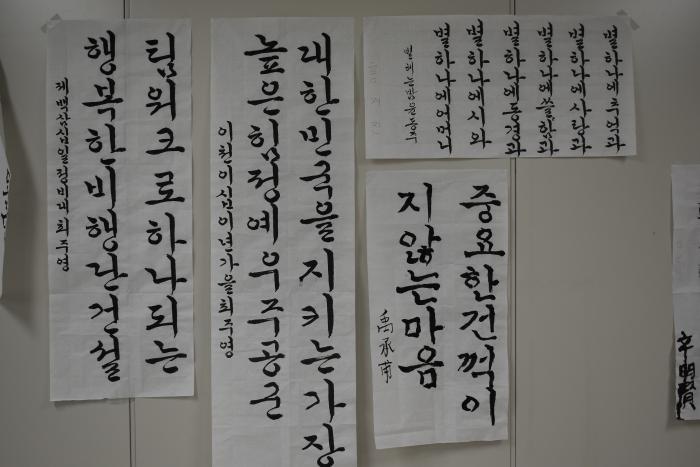 팀워크로하나되는
행복한비행단건설
제백삼십일정비대최주영
대한민국을지키는가장
높은힘정예우주공군
이천이십이년가을최주영
별하나에추억과
별하나에사랑과
별하나에쓸쓸함과
별하나에동경과
별하나에시와
별하나에어머니
별헤는밤윤동주
중요한건꺽이
지않는마음
禹承甫